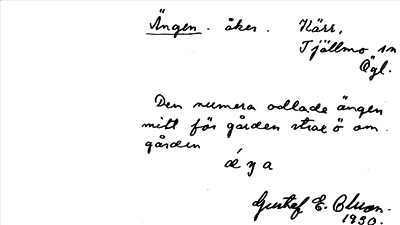 Ängen. åker. Kärr,
Tjällmo sn
Ögl.
Den numera odlade ängen
mitt för gården strax ö om
gården
Gustaf E. Olson.
1930.